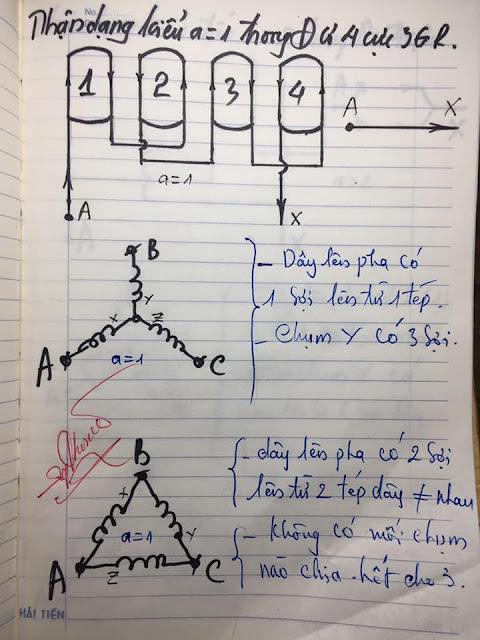 No.
Nhận dạng kiểu a=1 trong Đ/c 4 cực 3GR.
1 2 3 4
A X
a=1
A X
B
Y
X Z
A a=1 C
- Dây lên pha có
1 sợi lên từ 1 tép.
- Chụm Y có 3 sợi.
B
X
a=1 Y
A Z C
- dây lên pha có 2 sợi
lên từ 2 tép dây ≠ nhau
- Không có mối chụm
nào chia hết cho 3.
HẢI TIẾN